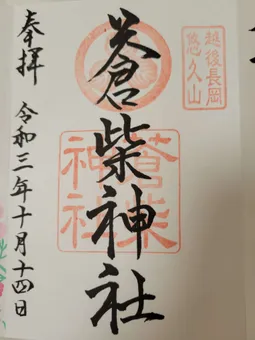 越後長岡
悠久山
蒼柴神社
蒼柴
神社
奉拝
令和三年十月十四日